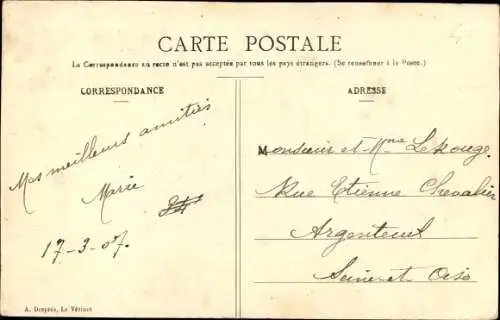 CARTE POSTALE
La Correspondance au recto n'est pas acceptée par tous les pays étrangers. (Se renseigner à la Poste.)
CORRESPONDANCE
Mes meilleurs amitiés
Marie
17-3-07.
A. Desprée, Le Vésinet
ADRESSE
Monsieur et Mme Lerouge
Rue Etienne Chevalier
Argenteuil
Seine et Oise